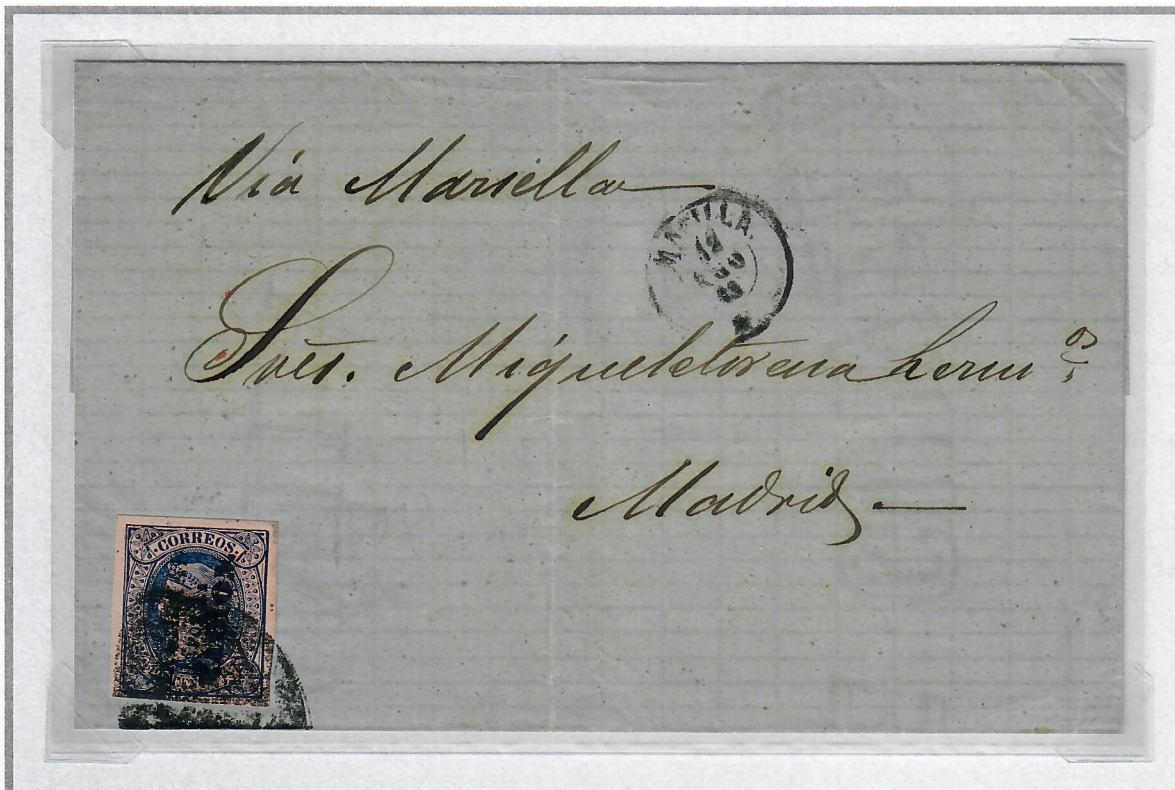 Via Marsella
MANILA
Sres. Migueletorena Herm.os
Madrid
CORREOS